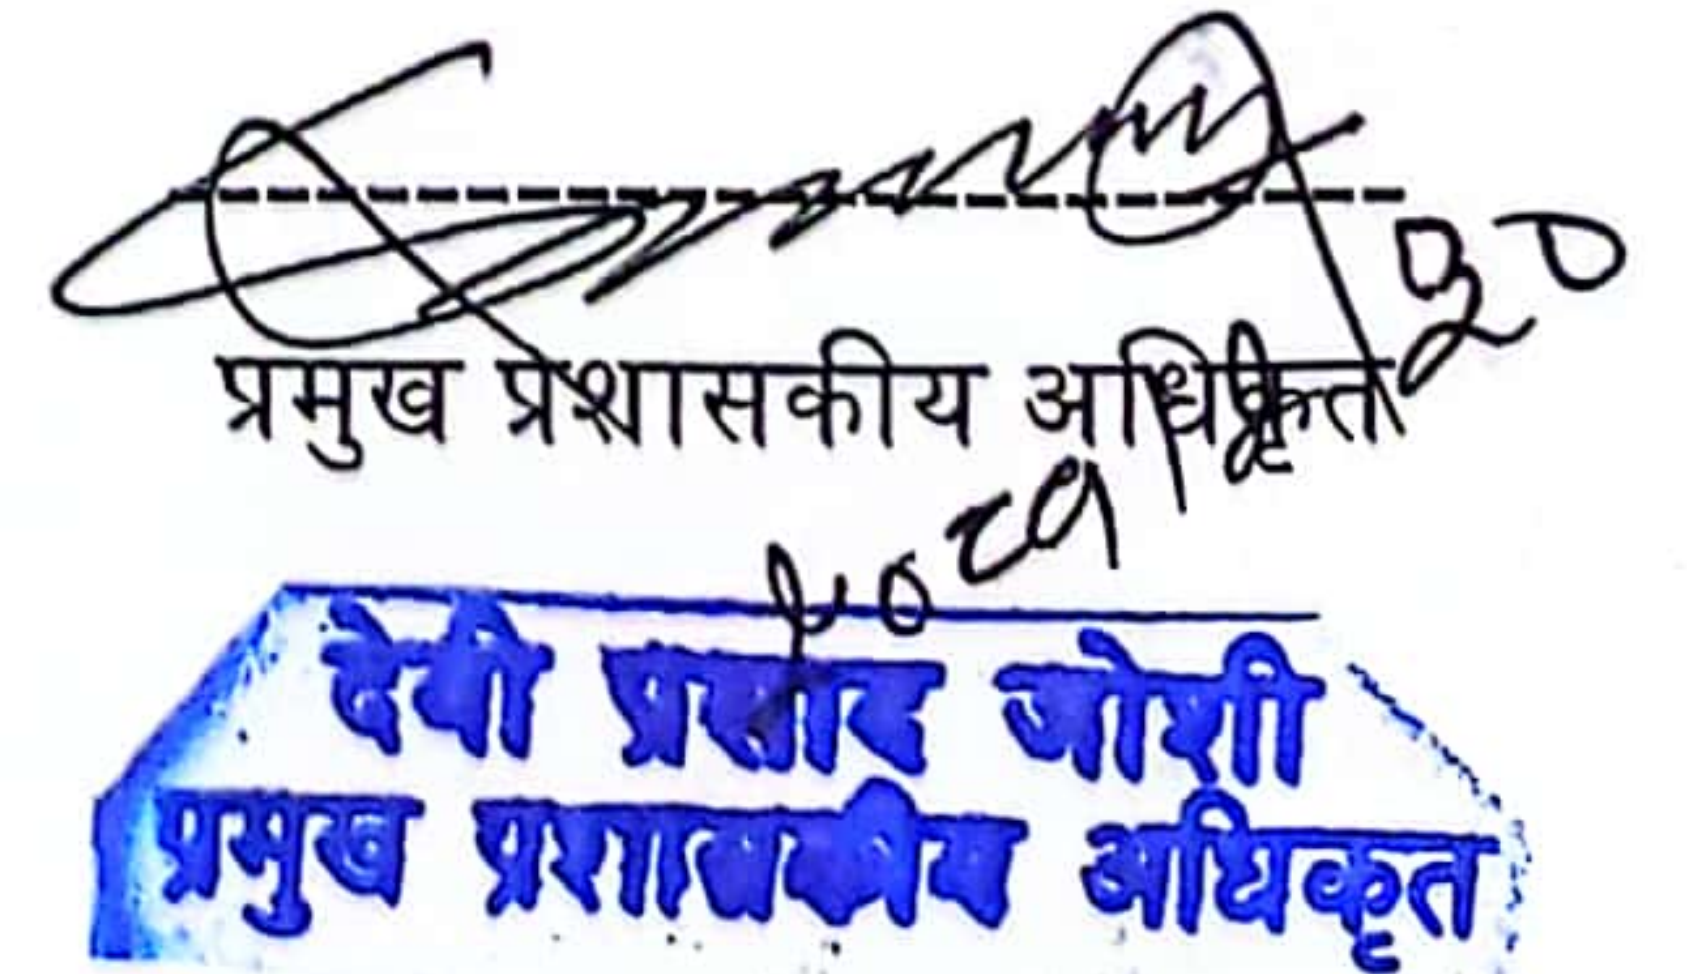 प्रमुख प्रशासकीय अधिकृत
देवी प्रसाद जोशी
प्रमुख प्रशासकीय अधिकृत